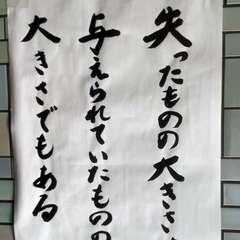 失ったものの大きさ
与えられていたものの
大きさでもある